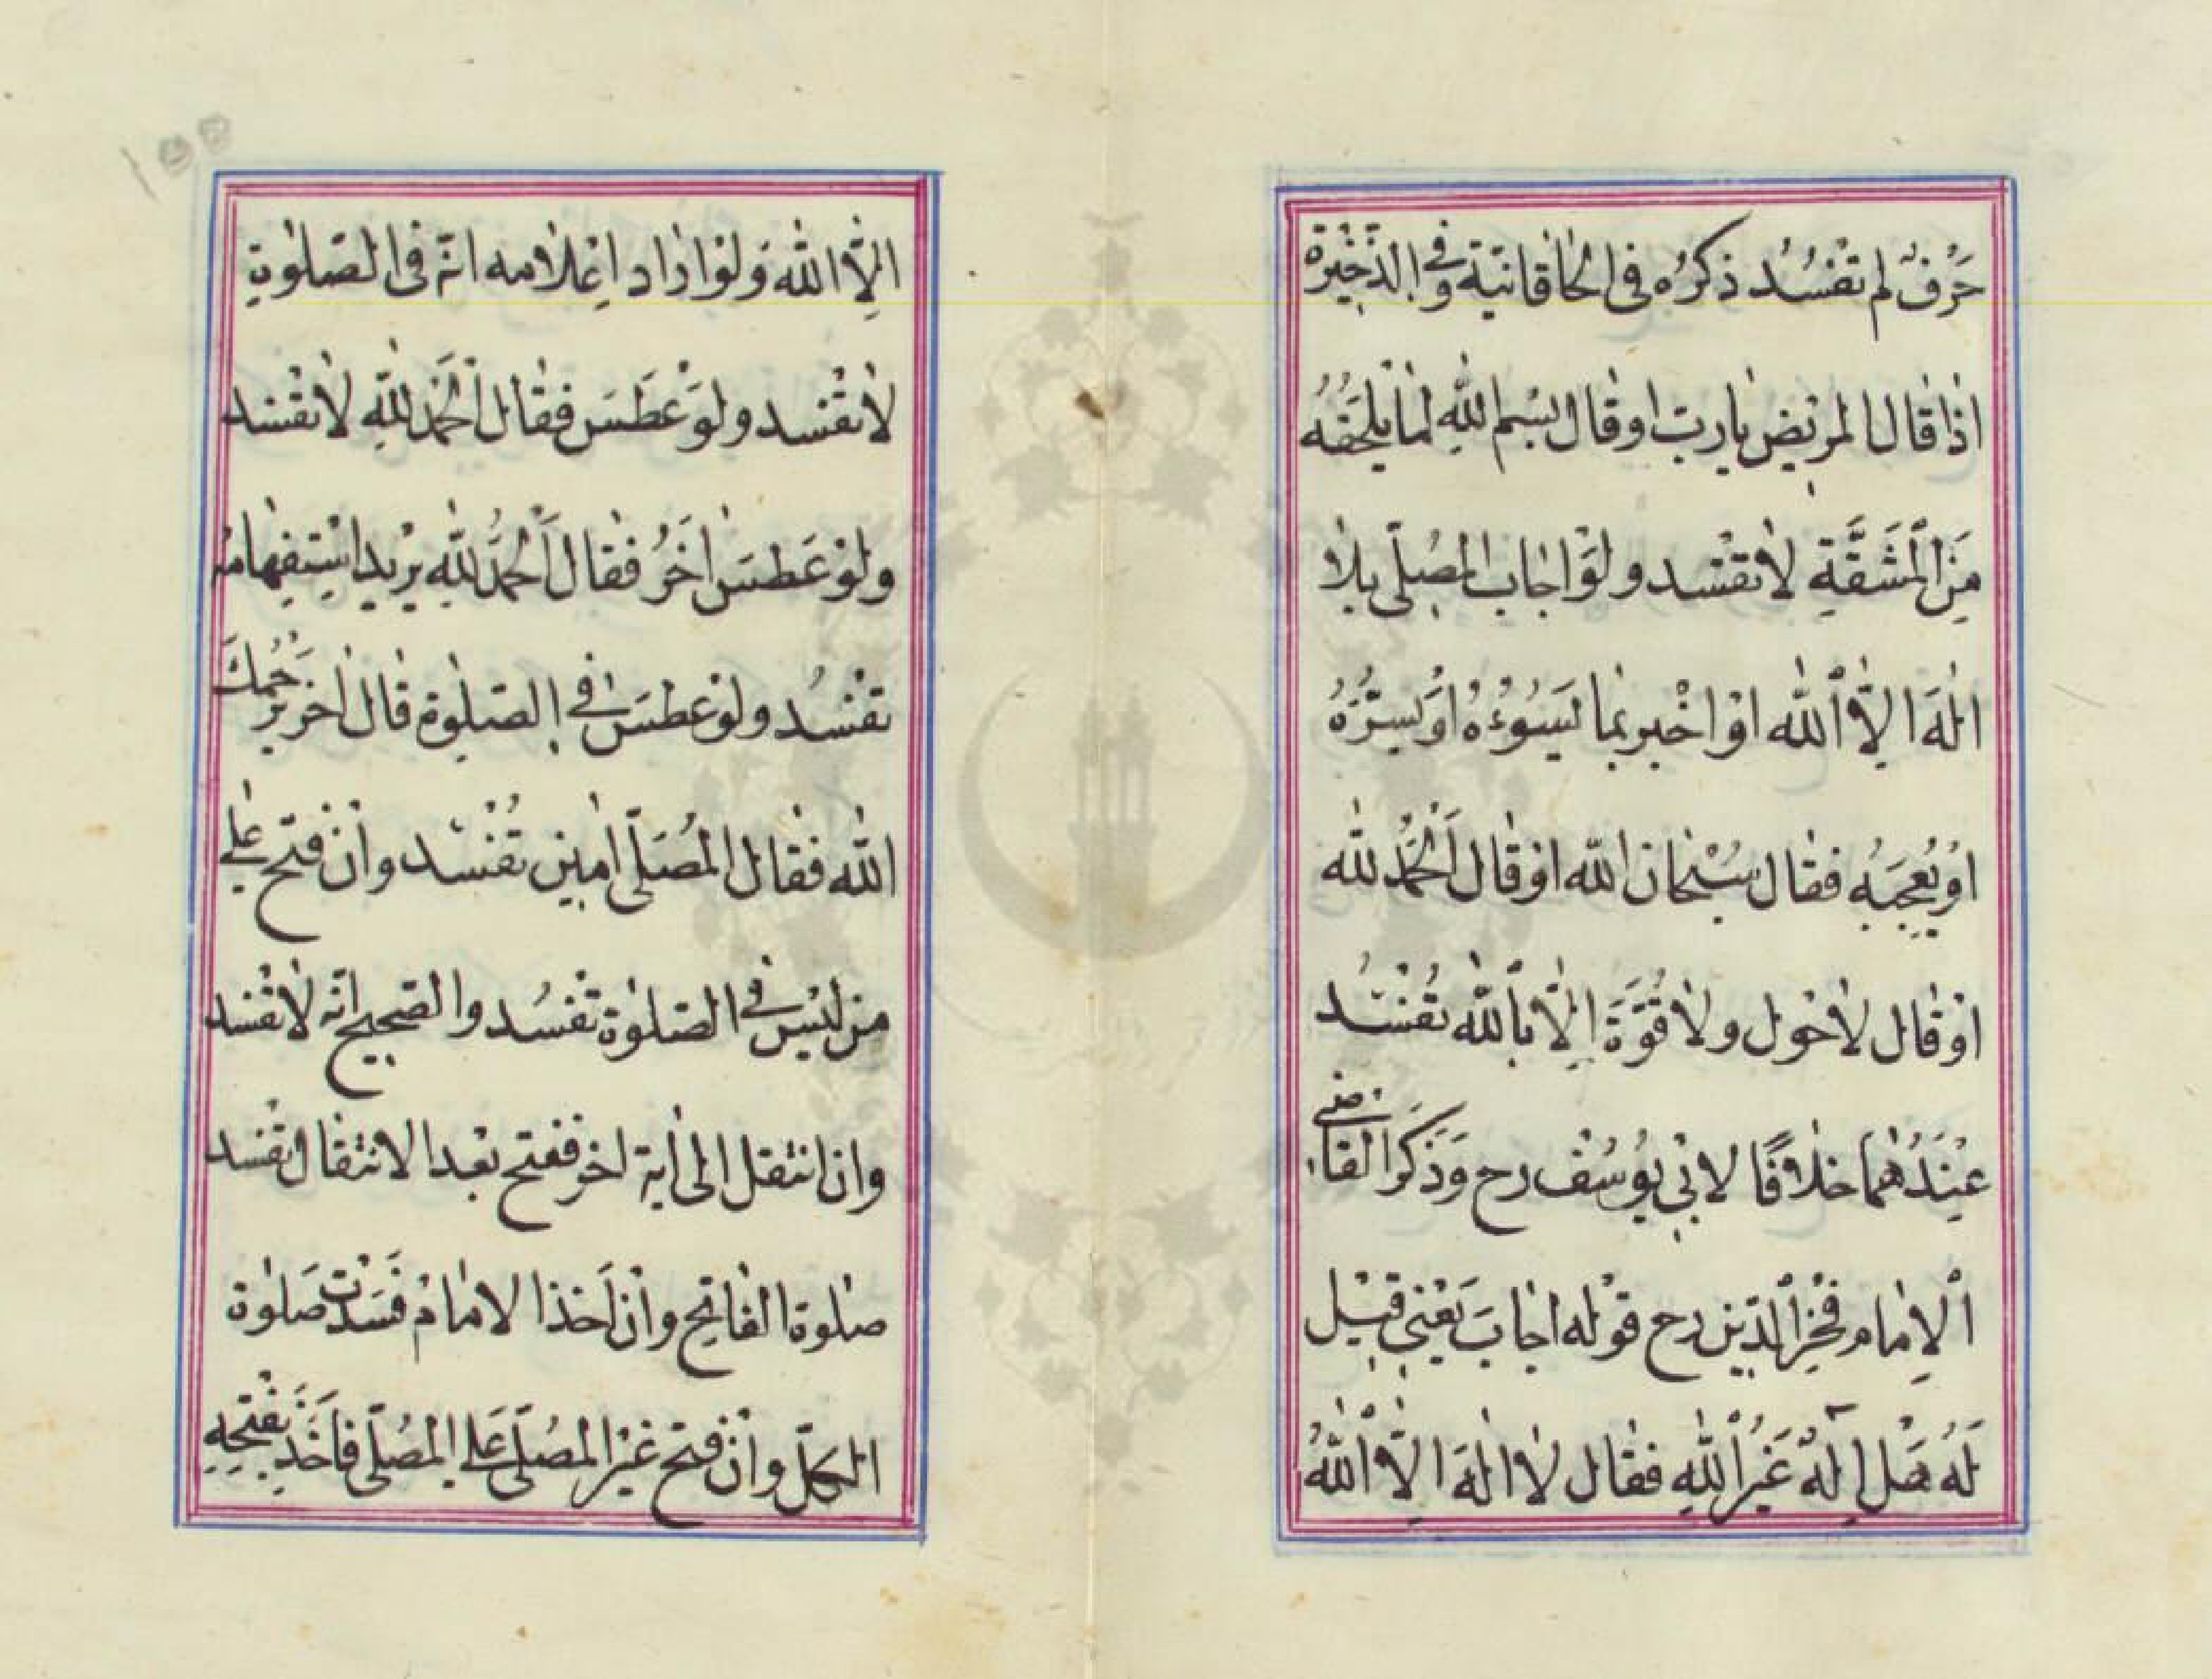 حَرْفٌ لم تفْسُدْ ذكرُه فى الخاقانيّة وفى الذّخيرة
اذا قال المريض يارب او قال بسْم اللّٰهِ لما يلحَقُهُ
مِنَ الْمَشَقَّةِ لا تفسد ولَوْ اجاب المصلّى بلا
الٰهَ الاَّ اللّٰه اوْ اخْبر بما يَسوُءُهُ اوْ يسرُّهُ
اوْ يُعجبَهُ فقال سُبْحان اللّٰه اوْ قال اَلْحَمْدُ للّٰه
اوْ قال لا حوْل ولا قُوَّةَ اِلاَّ باللّٰه تفْسُد
عِنْدَهُما خلافًا لابى يوُسُف رح وَذَكرَ القاضى
اَلاِمام فَخْرُ الدّين رح قوْله اجابَ يَعْنى قيْل
لَهُ هَل اِلٰهٌ غَيْرُ اللّٰهِ فقال لا الٰهَ الاَّ اللّٰهُ
الاَّ اللّٰه وَلوْ اراد اِعْلامه انّه فى الصّلوٰةِ
لا تفْسد ولَوْ عَطَسَ فقال اَلْحَمْد للّٰهِ لا تفْسد
ولوْ عَطسَ اخَرُ فقال اَلْحمْدُ للّٰهِ يرْيد استِفهامه
تفْسُد ولوْ عطسَ فى الصّلوٰة قال اخر يَرْحَمُكَ
اللّٰه فقال المُصَلّى امين تفْسد وانْ فتح على
من ليْس فى الصّلوٰة تفْسُد والصّحيح انّه لا تفْسد
وان انتقل الى اية اخر ففتح بعْد الانتقال تفسد
صلوٰة الفاتح وانْ اَخذ الامام فسَدتْ صَلوٰة
الكلّ وانْ فتح غيْر المصلّى عَلى المصُلّى فاَخَذَ بفتْحِهِ
١٥٥